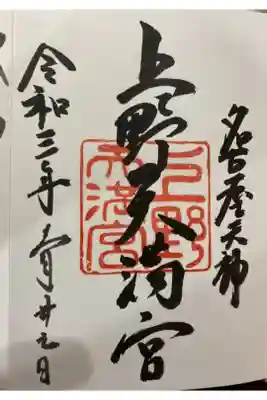 名古屋天神
上野天満宮
上野
天満宮
令和三年月廿日